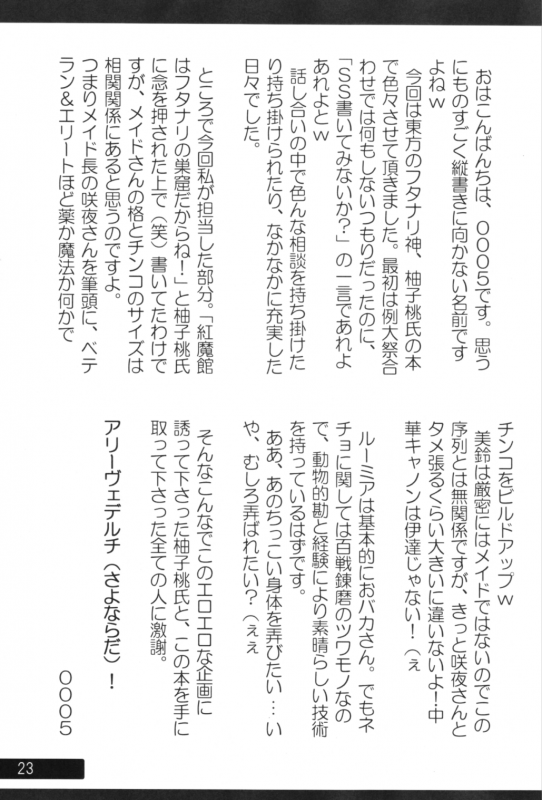 おはこんばんちは、0005です。思う
にものすごく縦書きに向かない名前です
よねw
今回は東方のフタナリ神、柚子桃氏の本
で色々させて頂きました。最初は例大祭合
わせでは何もしないつもりだったのに、
「SS書いてみないか？」の一言であれよ
あれよとw
話し合いの中で色んな相談を持ち掛けた
り持ち掛けられたり、なかなかに充実した
日々でした。
ところで今回私が担当した部分。「紅魔館
はフタナリの巣窟だからね！」と柚子桃氏
に念を押された上で（笑）書いてたわけで
すが、メイドさんの格とチンコのサイズは
相関関係にあると思うのですよ。
つまりメイド長の咲夜さんを筆頭に、ベテ
ラン＆エリートほど薬か魔法か何かで
チンコをビルドアップw
美鈴は厳密にはメイドではないのでこの
序列とは無関係ですが、きっと咲夜さんと
タメ張るくらい大きいに違いないよ！中
華キャノンは伊達じゃない！（ぇ
そんなこんなでこのエロエロな企画に
誘って下さった柚子桃氏と、この本を手に
取って下さった全ての人に激謝。
アリーヴェデルチ（さよならだ）！
0005
23